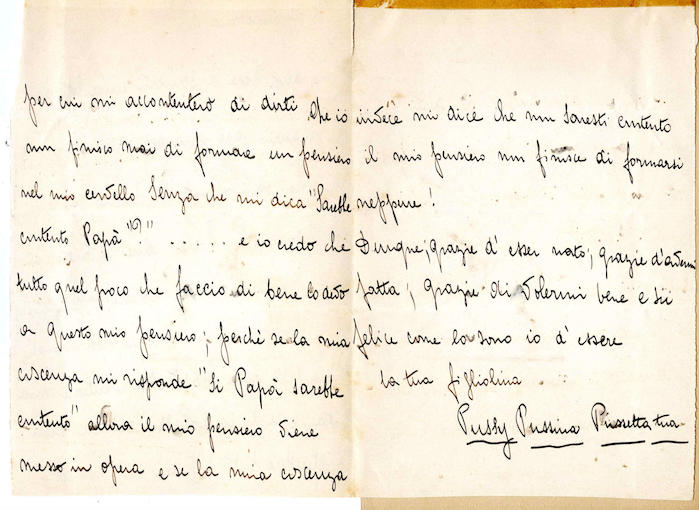 per cui mi accontenterò di dirti che io
non finisco mai di formare un pensiero
nel mio cervello senza che mi dica "Sarebbe
contento Papà"? " . . . . . e io credo che
tutto quel poco che faccio di bene lo devo
a questo mio pensiero; perchè se la mia
coscenza mi risponde "Si Papà sarebbe
contento" allora il mio pensiero viene
messo in opera e se la mia coscenza
invece mi dice che non saresti contento
il mio pensiero non finisce di formarsi
neppure!
Dunque, grazie d'esser nato; grazie d'avermi
fatta; grazie di volermi bene e sii
felice come lo sono io d'essere
la tua figliolina
Pussy Pussina Pussetta tua